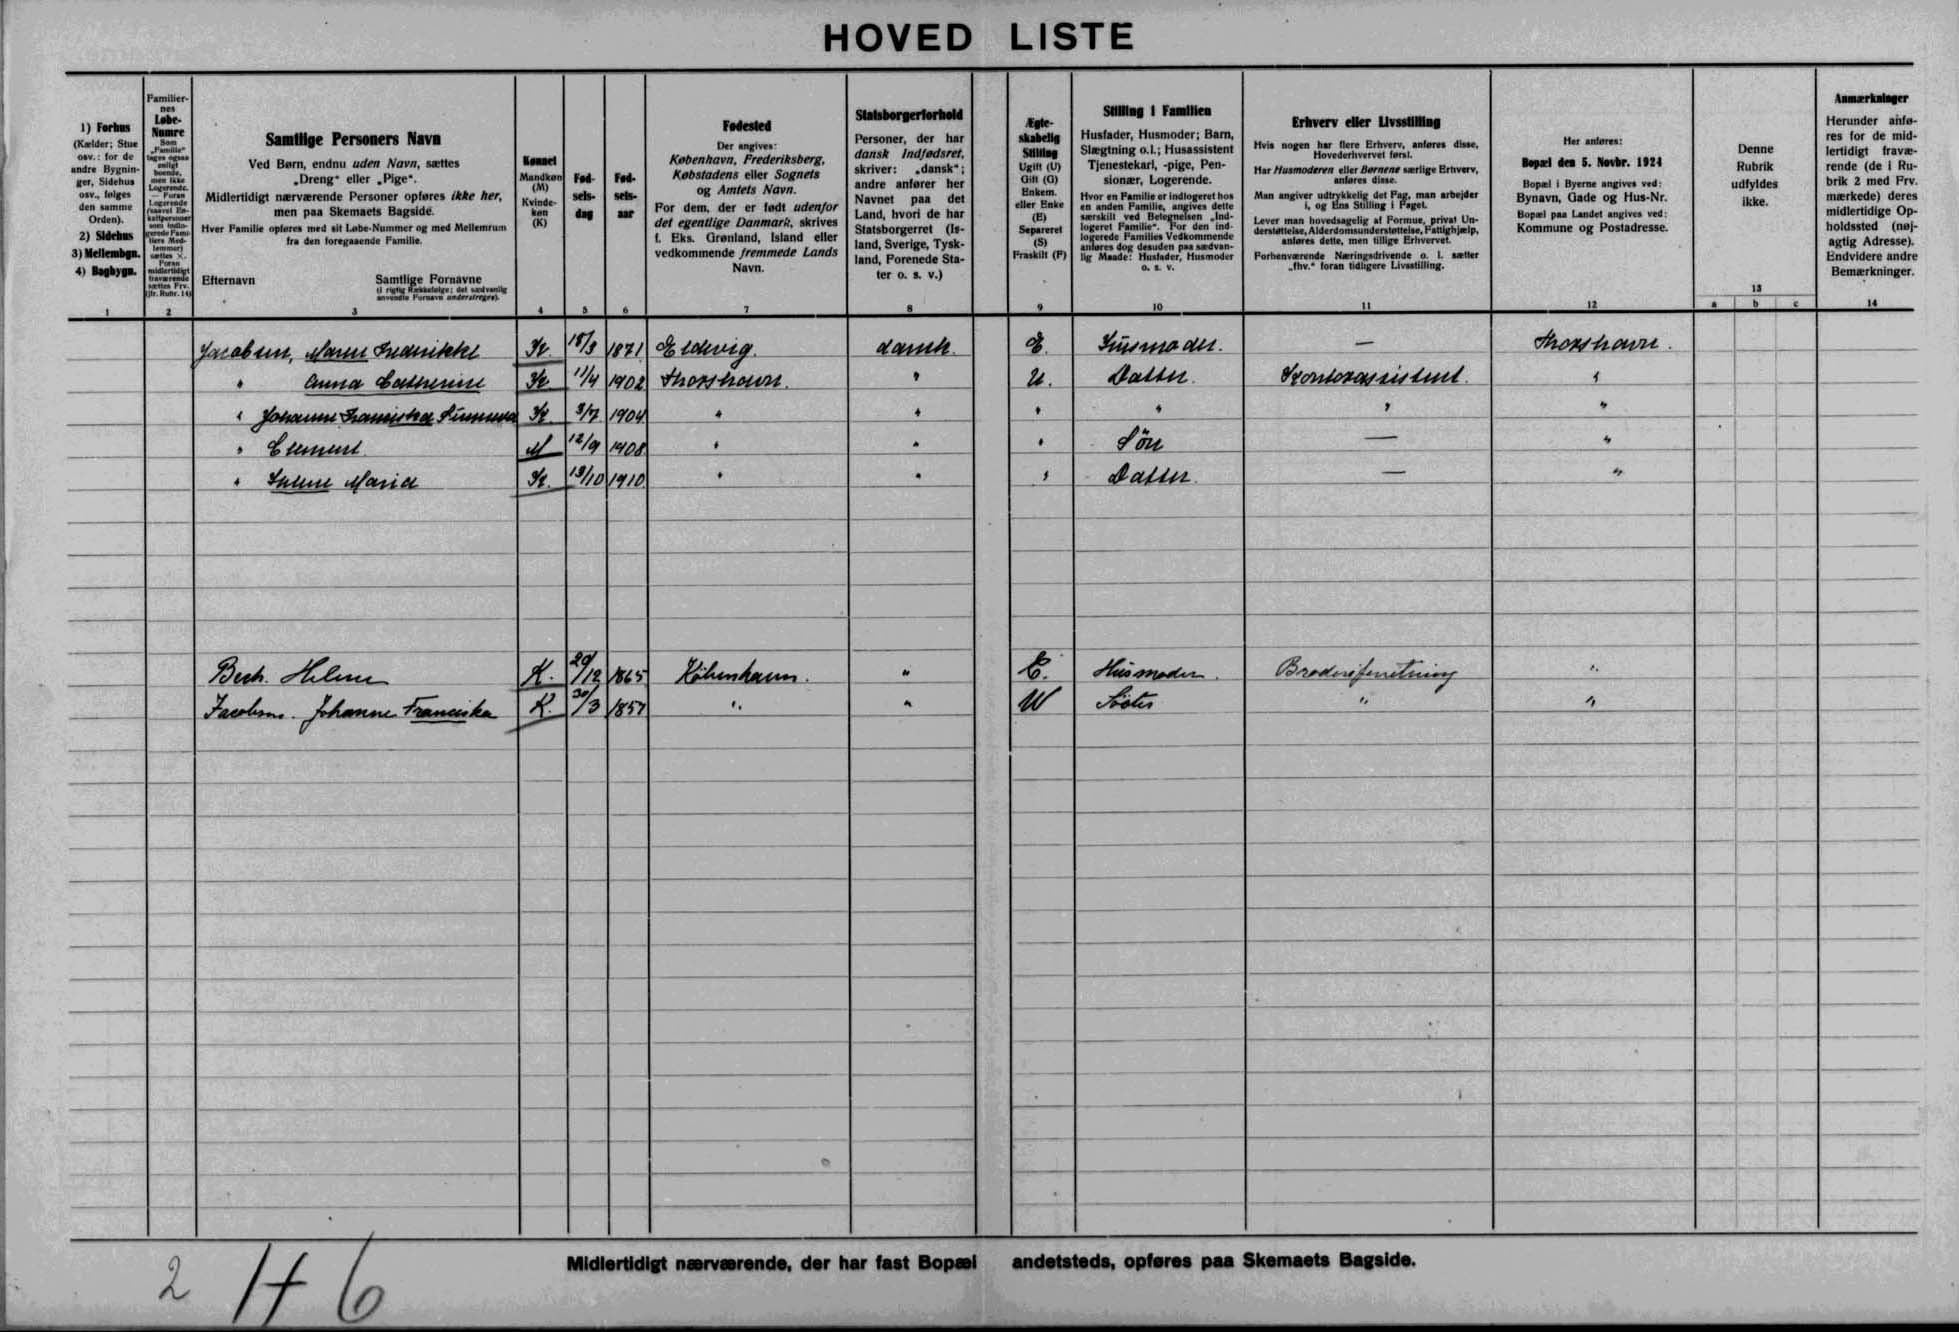 HOVED LISTE
1) Forhus
(Kælder; Stue
osv.: for de
andre Bygnin-
ger, Sidehus
osv., følges
den samme
Orden).
2) Sidehus
3) Mellembgn.
4) Bagbygn.
1
Familier-
nes
Løbe-
Numre
Som
„Familie“
tages ogsaa
enligt
boende,
men ikke
Logerende.
Foran
Logerende
(saavel En-
keltpersoner
som indlo-
gerede Fami-
liers Med-
lemmer)
sættes ×.
Foran
midlertidigt
fraværende
sættes Frv.
(jfr. Rubr. 14)
2
Samtlige Personers Navn
Ved Børn, endnu uden Navn, sættes
„Dreng“ eller „Pige“.
Midlertidigt nærværende Personer opføres ikke her,
men paa Skemaets Bagside.
Hver Familie opføres med sit Løbe-Nummer og med Mellemrum
fra den foregaaende Familie.
Efternavn Samtlige Fornavne
(i rigtig Rækkefølge; det sædvanlig
anvendte Fornavn understreges).
3
Kønnet
Mandkøn
(M)
Kvinde-
køn
(K)
4
Fød-
sels-
dag
5
Fød-
sels-
aar
6
Fødested
Der angives:
København, Frederiksberg,
Købstadens eller Sognets
og Amtets Navn.
For dem, der er født udenfor
det egentlige Danmark, skrives
f. Eks. Grønland, Island eller
vedkommende fremmede Lands
Navn.
7
Statsborgerforhold
Personer, der har
dansk Indfødsret,
skriver: „dansk“;
andre anfører her
Navnet paa det
Land, hvori de har
Statsborgerret (Is-
land, Sverige, Tysk-
land, Forenede Sta-
ter o. s. v.)
8
Ægte-
skabelig
Stilling
Ugift (U)
Gift (G)
Enkem.
eller Enke
(E)
Separeret
(S)
Fraskilt (F)
9
Stilling i Familien
Husfader, Husmoder; Barn,
Slægtning o.l.; Husassistent
Tjenestekarl, -pige, Pen-
sionær, Logerende.
Hvor en Familie er indlogeret hos
en anden Familie, angives dette
særskilt ved Betegnelsen „Ind-
logeret Familie“. For den ind-
logerede Families Vedkommende
anføres dog desuden paa sædvan-
lig Maade: Husfader, Husmoder
o. s. v.
10
Erhverv eller Livsstilling
Hvis nogen har flere Erhverv, anføres disse,
Hovederhvervet først.
Har Husmoderen eller Børnene særlige Erhverv,
anføres disse.
Man angiver udtrykkelig det Fag, man arbejder
i, og Ens Stilling i Faget.
Lever man hovedsagelig af Formue, privat Un-
derstøttelse, Alderdomsunderstøttelse, Fattighjælp,
anføres dette, men tillige Erhvervet.
Forhenværende Næringsdrivende o. l. sætter
„fhv.“ foran tidligere Livsstilling.
11
Her anføres:
Bopæl den 5. Novbr. 1924
Bopæl i Byerne angives ved:
Bynavn, Gade og Hus-Nr.
Bopæl paa Landet angives ved:
Kommune og Postadresse.
12
Denne
Rubrik
udfyldes
ikke.
13
a b c
Anmærkninger
Herunder anfø-
res for de mid-
lertidigt fravæ-
rende (de i Ru-
brik 2 med Frv.
mærkede) deres
midlertidige Op-
holdssted (nøj-
agtig Adresse).
Endvidere andre
Bemærkninger.
14
Jacobsen, Maren Frederikke K. 18/3 1871 Eldevig. dansk. E. Husmoder. — Thorshavn.
" Anna Catherine K 11/4 1902 Thorshavn. " U. Datter. Kontorassistent. "
" Johanne Franciska Sunneva K 3/7 1904 " " " " " "
" Clement M 12/9 1908 " " " Søn — "
" Malene Maria K. 13/10 1910 " " " Datter. — "
Bech. Helene K. 29/12 1865 København. " E. Husmoder. Broderiforretning "
Jacobsen. Johanne Franciska K. 30/3 1857 " " U Søster " "
Midlertidigt nærværende, der har fast Bopæl andetsteds, opføres paa Skemaets Bagside.
2 H 6